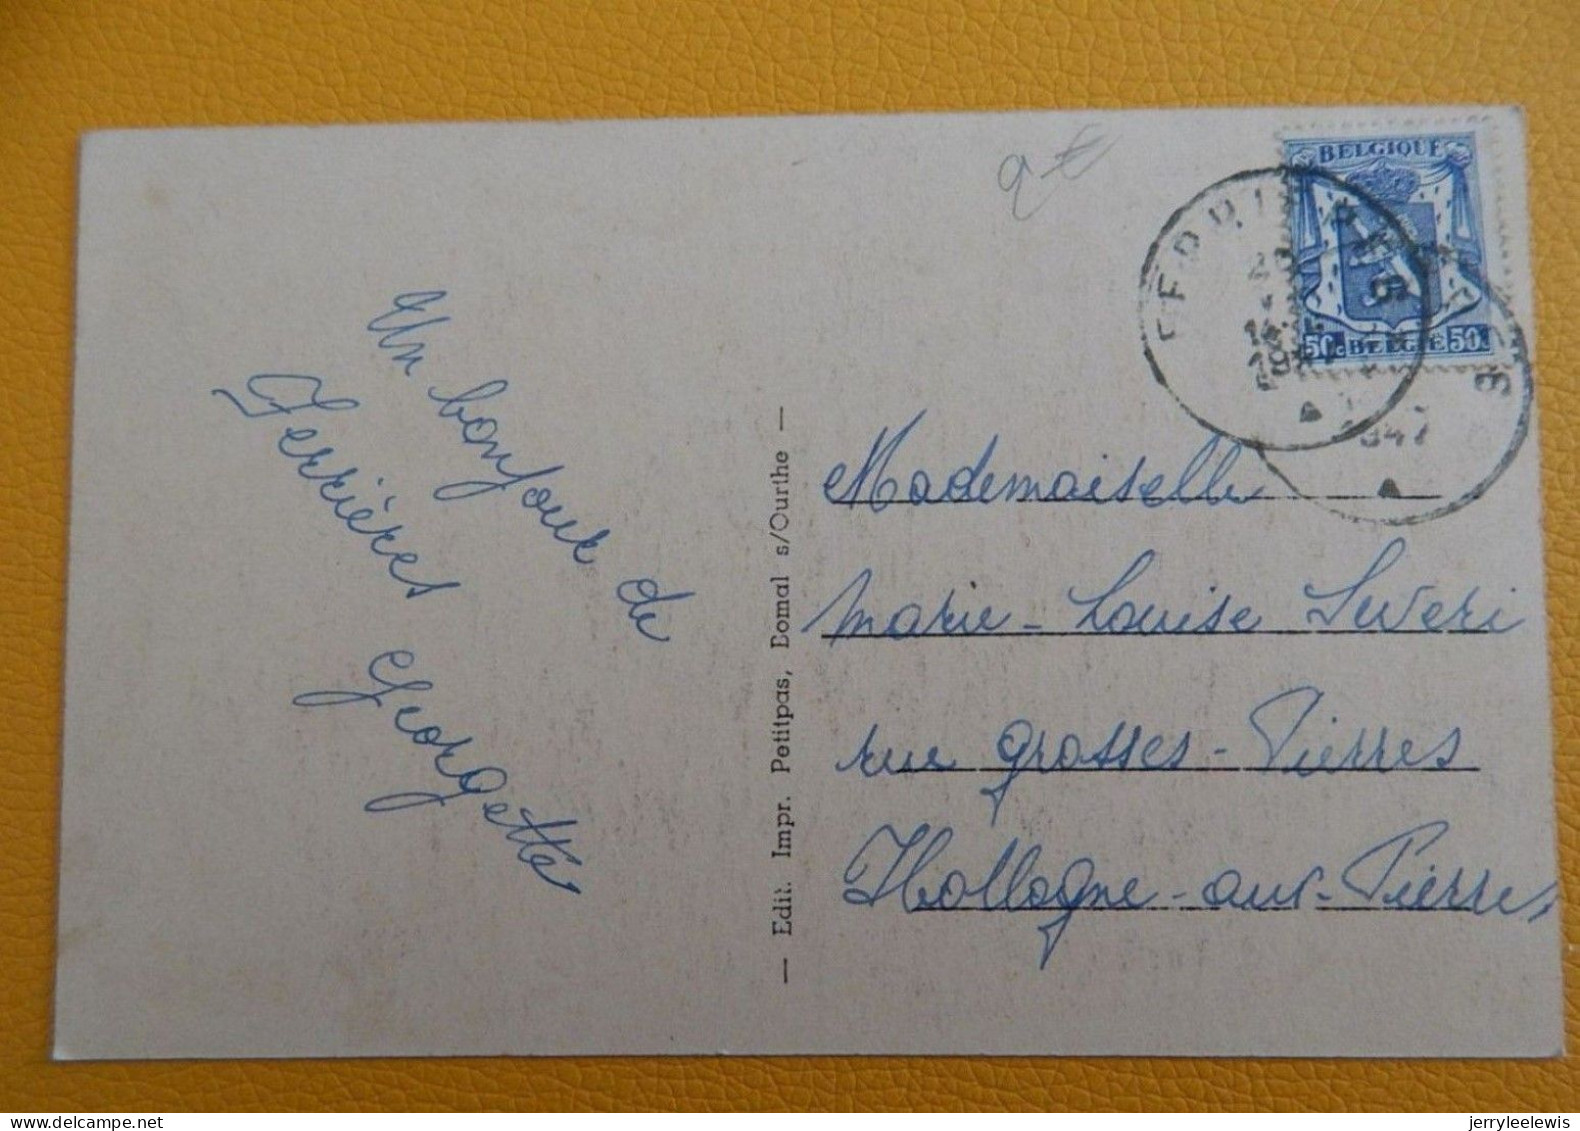 BELGIQUE
50c BELGIË 50c
1947
Un bonjour de
Ferrières
Georgette
— Edit. Impr. Petitpas, Bomal s/Ourthe —
Mademoiselle
Marie-Louise Severi
rue grosses-Pierres
Hollogne-aux-Pierres
delcampe.net
jerryleelewis